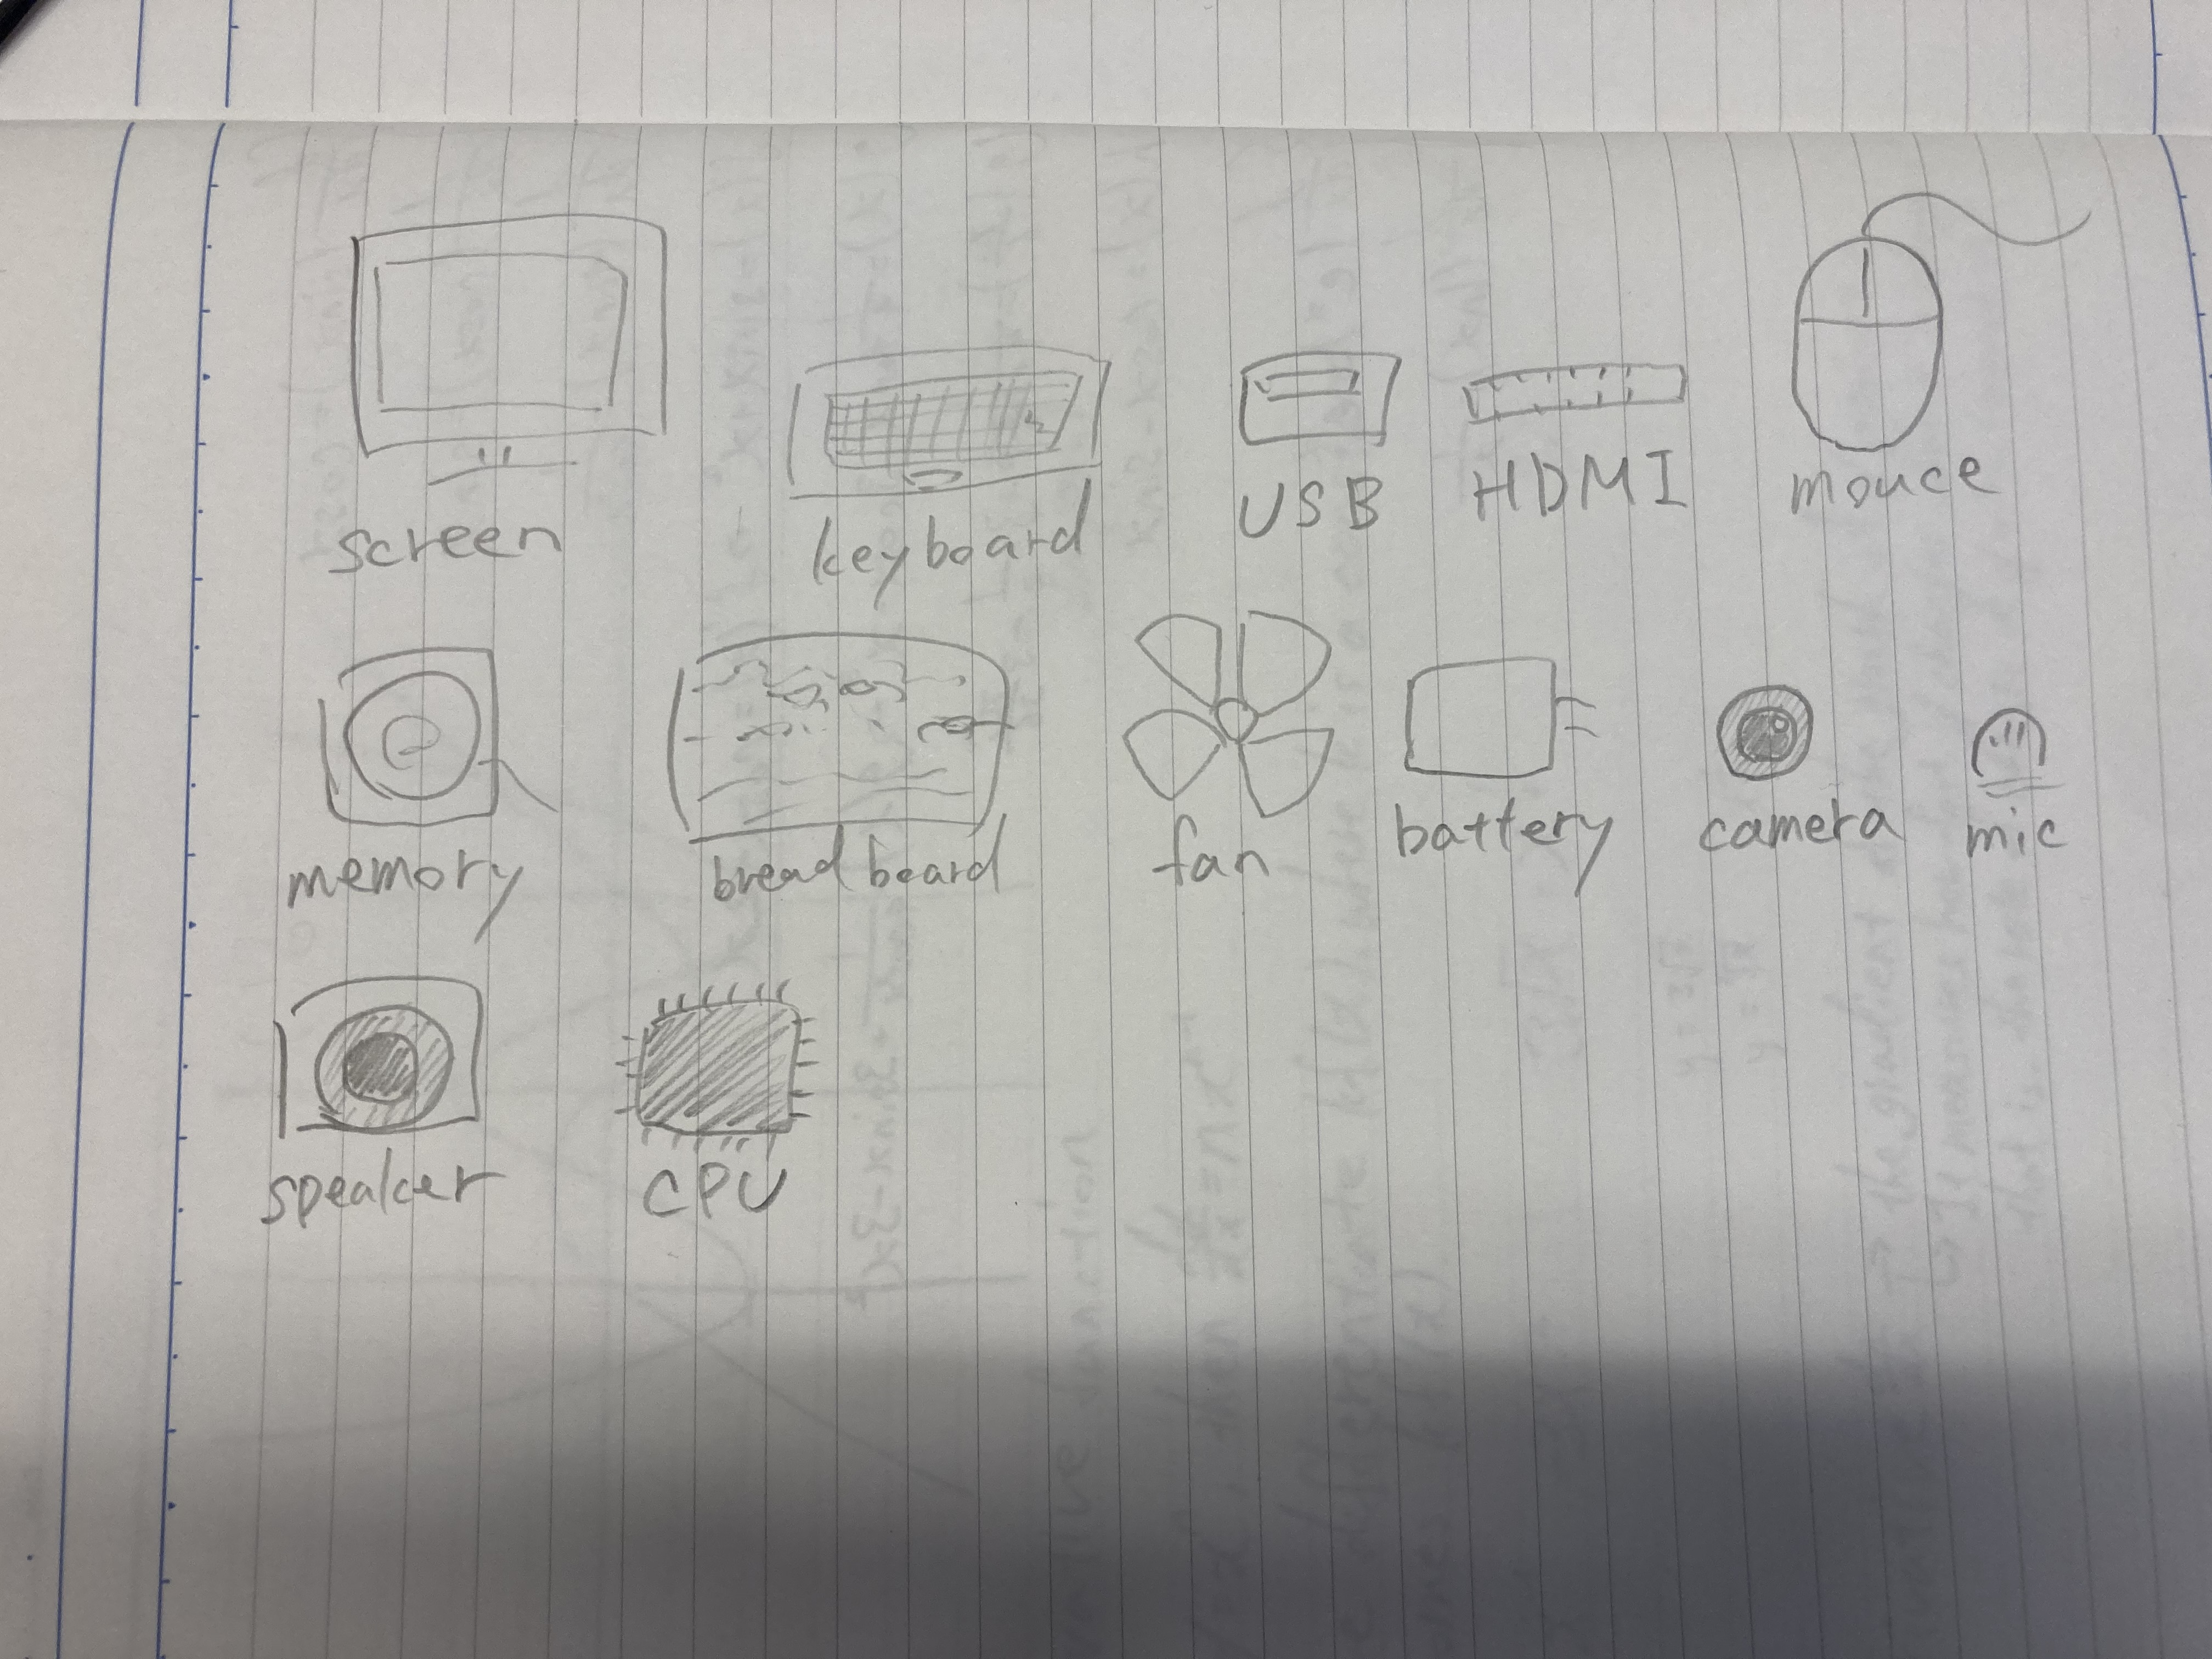 screen keyboard USB HDMI mouce
memory breadboard fan battery camera mic
speaker CPU